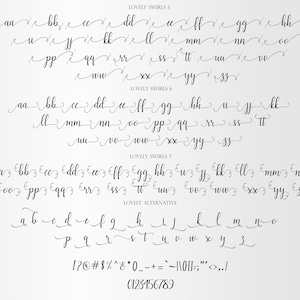 LOVELY SWIRLS 5
aa bb cc dd ee ff gg hh
ii jj kk ll mm nn oo
pp qq rr ss tt uu vv
ww xx yy zz
LOVELY SWIRLS 6
aa bb cc dd ee ff gg hh ii jj kk
ll mm nn oo pp qq rr ss tt
uu vv ww xx yy zz
LOVELY SWIRLS 7
bb cc dd ee ff gg hh ii jj kk ll mm nn
oo pp qq rr ss tt uu vv ww xx yy
LOVELY ALTERNATIVE
a b c d e f g h i j k l m n o
p q r s t u v w x y z
!?@#$%^&*()_-+=`~|\{}[]:;"'<>,./
0123456789